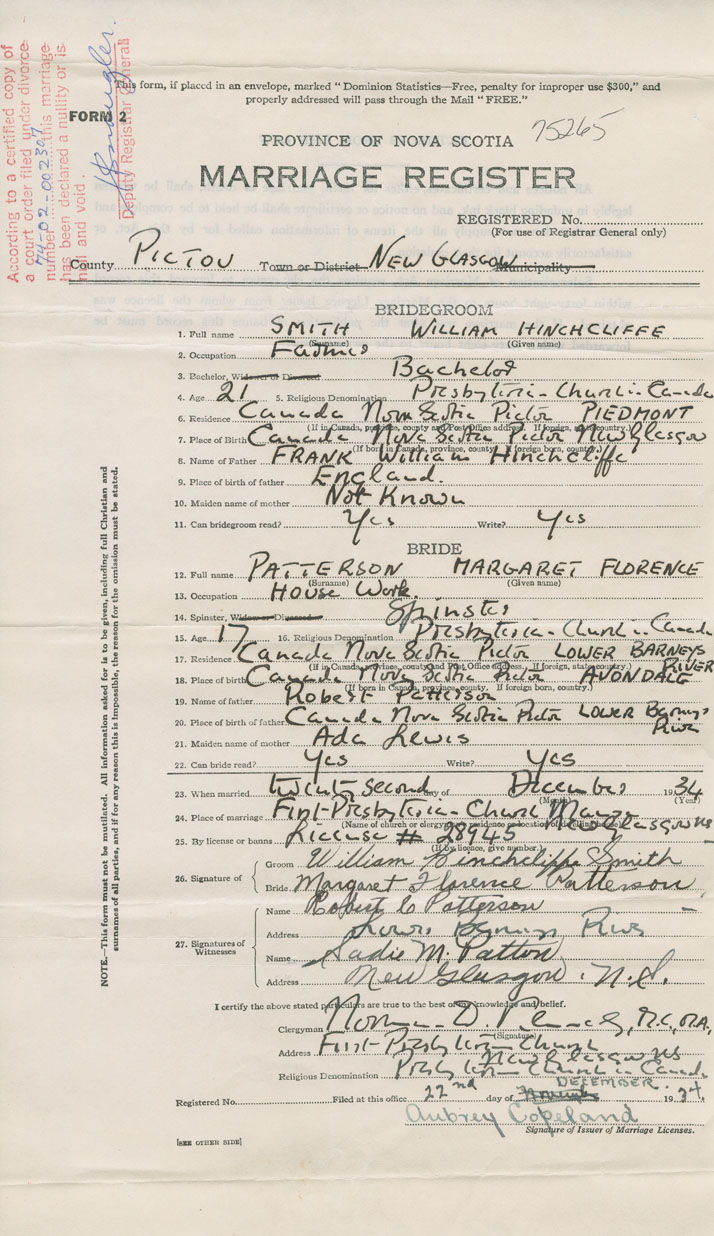 According to a certified copy of
a court order filed under divorce
number 74-02-002307 this marriage
has been declared a nullity or is
null and void.
Deputy Registrar General
This form, if placed in an envelope, marked “ Dominion Statistics—Free, penalty for improper use $300,” and
properly addressed will pass through the Mail “ FREE.”
FORM 2
75265
PROVINCE OF NOVA SCOTIA
MARRIAGE REGISTER
REGISTERED No.
(For use of Registrar General only)
County PICTOU Town or District NEW GLASGOW Municipality
BRIDEGROOM
1. Full name SMITH WILLIAM HINCHCLIFFE
(Surname) (Given name)
2. Occupation Farmer
3. Bachelor, Widower or Divorced Bachelor
4. Age 21 5. Religious Denomination Presbyterian Church in Canada
6. Residence Canada Nova Scotia Pictou PIEDMONT
(If in Canada, province, county and Post Office address. If foreign, state country.)
7. Place of Birth Canada Nova Scotia Pictou New Glasgow
(If born in Canada, province, county. If foreign born, country.)
8. Name of Father FRANK William Hinchcliffe
9. Place of birth of father England.
10. Maiden name of mother Not Known
11. Can bridegroom read? Yes Write? Yes
BRIDE
12. Full name PATTERSON MARGARET FLORENCE
(Surname) (Given name)
13. Occupation House Work.
14. Spinster, Widow or Divorced Spinster
15. Age 17 16. Religious Denomination Presbyterian Church in Canada
17. Residence Canada Nova Scotia Pictou LOWER BARNEYS RIVER
(If in Canada, province, county and Post Office address. If foreign, state country.)
18. Place of birth Canada Nova Scotia Pictou AVONDALE
(If born in Canada, province, county. If foreign born, country.)
19. Name of father Robert Patterson
20. Place of birth of father Canada Nova Scotia Pictou LOWER Barneys River
21. Maiden name of mother Ada Lewis
22. Can bride read? Yes Write? Yes
23. When married twenty second day of December 1934
(Month) (Year)
24. Place of marriage First Presbyterian Church Manse New Glasgow NS
(Name of church or clergyman's residence or location of
25. By license or banns License # 28945
(If by licence, give number.)
26. Signature of Groom William Hinchcliffe Smith
Bride Margaret Florence Patterson
27. Signatures of Witnesses Name Robert C Patterson
Address Lower Barneys River
Name Sadie M. Patton
Address New Glasgow, N.S.
I certify the above stated particulars are true to the best of my knowledge and belief.
Clergyman Norman D. M.C., M.A.
(Signature)
Address First Presbyterian Church
New Glasgow NS
Religious Denomination Presbyterian Church in Canada
DECEMBER.
Registered No. Filed at this office 22nd day of November 1934.
Aubrey Copeland
Signature of Issuer of Marriage Licenses.
[SEE OTHER SIDE]
NOTE.—This form must not be mutilated. All information asked for is to be given, including full Christian and
surnames of all parties, and if for any reason this is impossible, the reason for the omission must be stated.